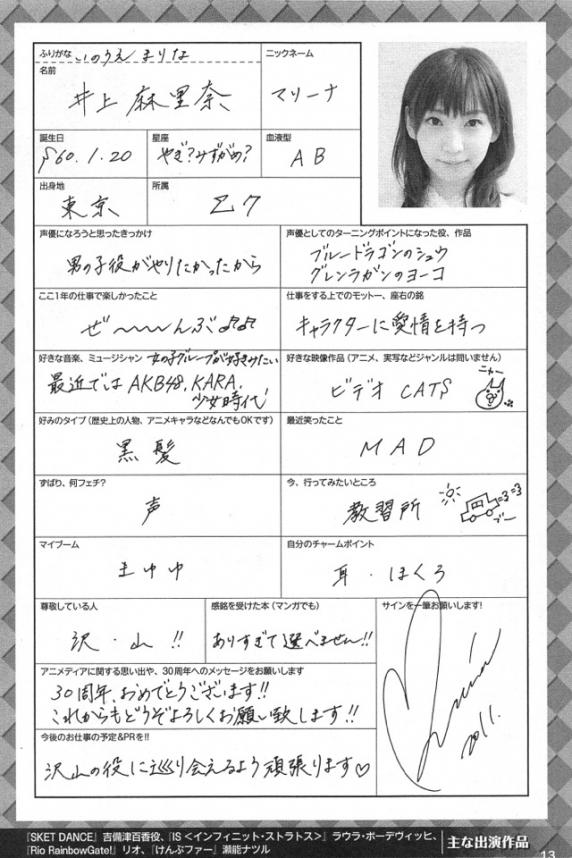 ふりがな いのうえ まりな
名前
井上 麻里奈
ニックネーム
マリーナ
誕生日
S60.1.20
星座
やぎ?みずがめ?
血液型
AB
出身地
東京
所属
乙ク
声優になろうと思ったきっかけ
男の子役がやりたかったから
声優としてのターニングポイントになった役、作品
ブルードラゴンのシュウ
グレンラガンのヨーコ
ここ1年の仕事で楽しかったこと
ぜ〜〜〜んぶ♪♪
仕事をする上でのモットー、座右の銘
キャラクターに愛情を持つ
好きな音楽、ミュージシャン 女の子グループが好きみたい
最近では AKB48, KARA,
少女時代
好きな映像作品(アニメ、実写などジャンルは問いません)
ビデオ CATS
ニャー
好みのタイプ(歴史上の人物、アニメキャラなどなんでもOKです)
黒髪
最近笑ったこと
MAD
ずばり、何フェチ?
声
今、行ってみたいところ
教習所
ブー
マイブーム
まゆゆ
自分のチャームポイント
耳・ほくろ
尊敬している人
沢・山!!
感銘を受けた本(マンガでも)
ありすぎて選べません!!
サインを一筆お願いします!
2011.
アニメディアに関する思い出や、30周年へのメッセージをお願いします
30周年、おめでとうございます!!
これからもどうぞよろしくお願い致します!!
今後のお仕事の予定&PRを!!
沢山の役に巡り会えるよう頑張ります♡
『SKET DANCE』吉備津百香役、『IS<インフィニット・ストラトス>』ラウラ・ボーデヴィッヒ、
『Rio RainbowGate!』リオ、『けんぷファー』瀬能ナツル
主な出演作品
13